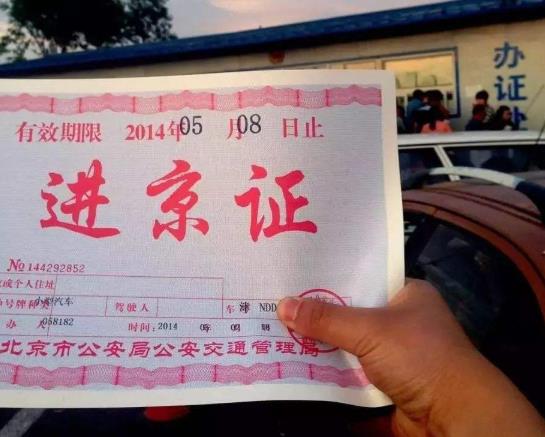 有效期限 2014年05月08日止
进京证
No 144292852
或个人住址
号牌种类 小型汽车 驾驶人 车 津 NDD
办人 058182 时间:2014
北京市公安局公安交通管理局
办证